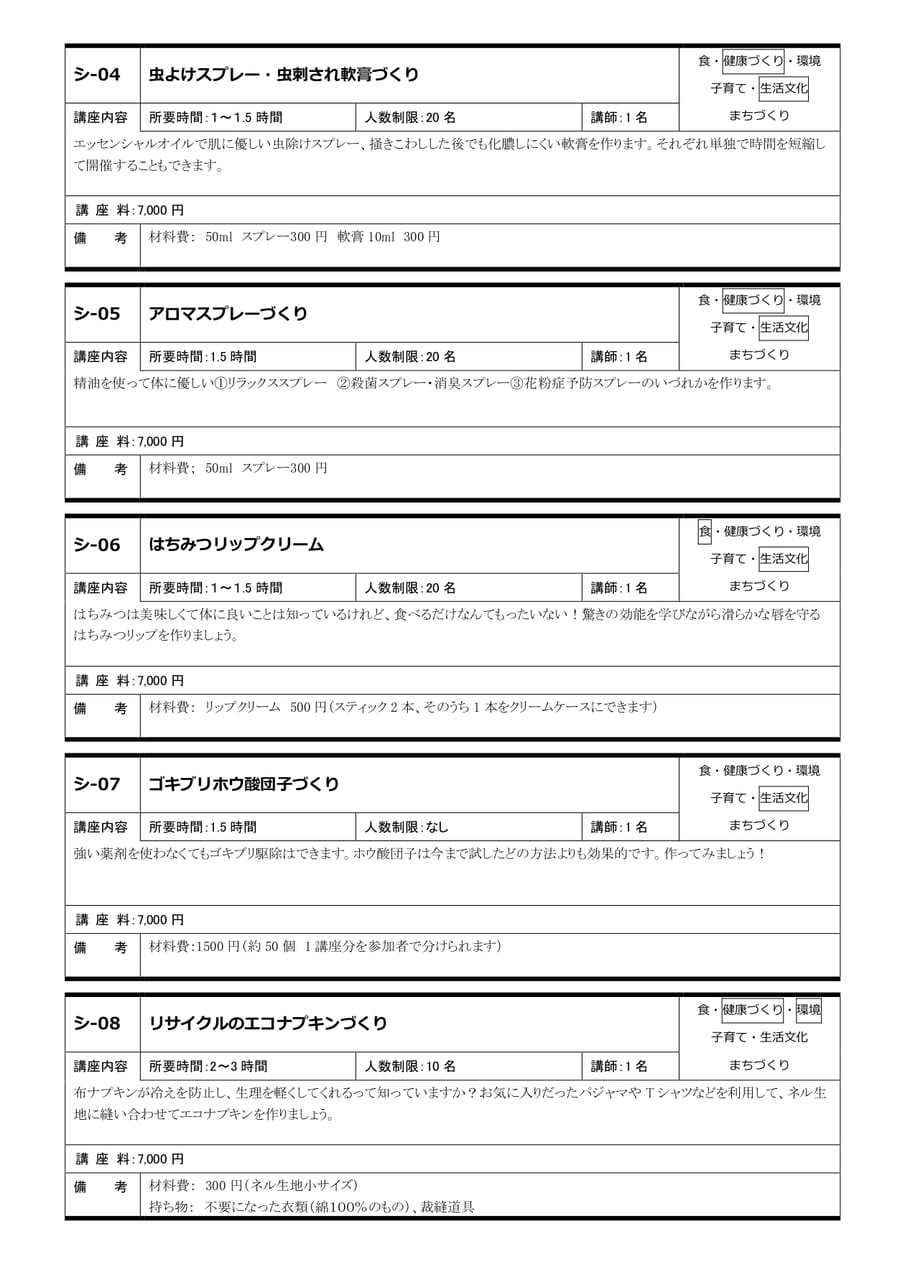 シ-04 虫よけスプレー・虫刺され軟膏づくり
食・健康づくり・環境
子育て・生活文化
まちづくり
講座内容 所要時間：1～1.5 時間 人数制限：20 名 講師：1 名
エッセンシャルオイルで肌に優しい虫除けスプレー、掻きこわしした後でも化膿しにくい軟膏を作ります。それぞれ単独で時間を短縮し
て開催することもできます。
講 座 料：7,000 円
備 考 材料費： 50ml スプレー300 円 軟膏 10ml 300 円
シ-05 アロマスプレーづくり
食・健康づくり・環境
子育て・生活文化
まちづくり
講座内容 所要時間：1.5 時間 人数制限：20 名 講師：1 名
精油を使って体に優しい①リラックススプレー ②殺菌スプレー・消臭スプレー③花粉症予防スプレーのいづれかを作ります。
講 座 料：7,000 円
備 考 材料費； 50ml スプレー300 円
シ-06 はちみつリップクリーム
食・健康づくり・環境
子育て・生活文化
まちづくり
講座内容 所要時間：1～1.5 時間 人数制限：20 名 講師：1 名
はちみつは美味しくて体に良いことは知っているけれど、食べるだけなんてもったいない！驚きの効能を学びながら滑らかな唇を守る
はちみつリップを作りましょう。
講 座 料：7,000 円
備 考 材料費： リップクリーム 500 円（スティック 2 本、そのうち 1 本をクリームケースにできます）
シ-07 ゴキブリホウ酸団子づくり
食・健康づくり・環境
子育て・生活文化
まちづくり
講座内容 所要時間：1.5 時間 人数制限：なし 講師：1 名
強い薬剤を使わなくてもゴキブリ駆除はできます。ホウ酸団子は今まで試したどの方法よりも効果的です。作ってみましょう！
講 座 料：7,000 円
備 考 材料費：1500 円（約 50 個 1 講座分を参加者で分けられます）
シ-08 リサイクルのエコナプキンづくり
食・健康づくり・環境
子育て・生活文化
まちづくり
講座内容 所要時間：2～3 時間 人数制限：10 名 講師：1 名
布ナプキンが冷えを防止し、生理を軽くしてくれるって知っていますか？お気に入りだったパジャマや T シャツなどを利用して、ネル生
地に縫い合わせてエコナプキンを作りましょう。
講 座 料：7,000 円
備 考 材料費： 300 円（ネル生地小サイズ）
持ち物： 不要になった衣類（綿100％のもの）、裁縫道具